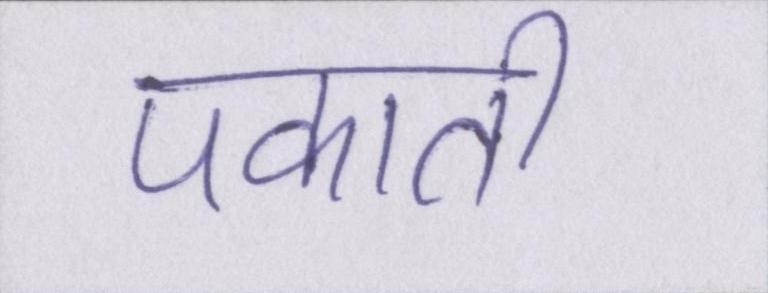 पकाती